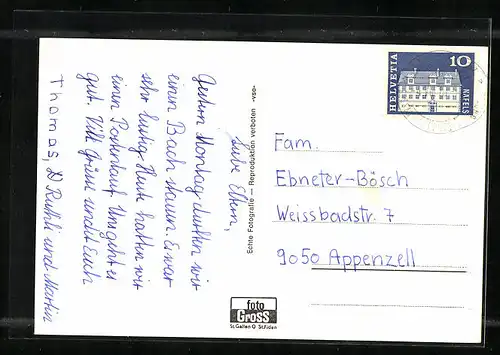 Liebe Eltern,
Gestern Montag durften wir
einen Bach stauen. Es war
sehr lustig. Heute hatten wir
einen Postenlauf. Uns geht es
gut. Viele Grüsse sendet Euch
Thomas, Ruthli und Martin
Echte Fotografie — Reproduktion verboten «vse»
foto
Gross
St.Gallen O St.Fiden
HELVETIA
10
NÄFELS
Fam.
Ebneter-Bösch
Weissbadstr. 7
9050 Appenzell